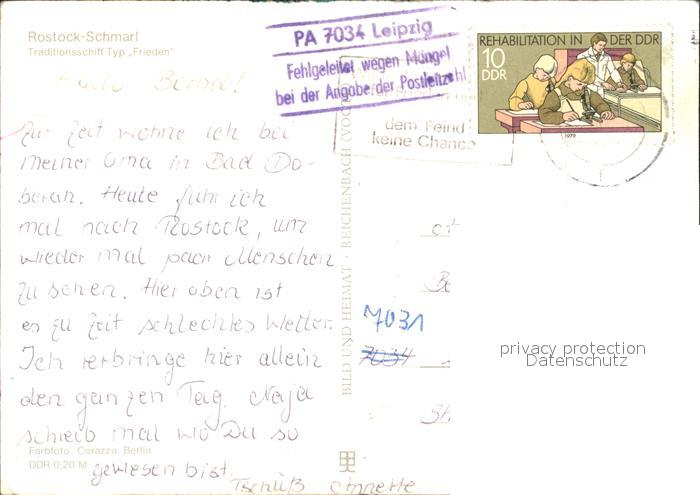 Rostock-Schmarl
Traditionsschiff Typ „Frieden"
Hallo Bernd!
Zur Zeit wohne ich bei
meiner Oma in Bad Do-
beran. Heute fuhr ich
mal nach Rostock, um
wieder mal paar Menschen
zu sehen. Hier oben ist
es zu Zeit schlechtes Wetter.
Ich verbringe hier allein
den ganzen Tag. Naja
schreib mal wo Du so
gewesen bist.
Tschüß Annette
Farbfoto: Corazza, Berlin
DDR 0,20 M
BILD UND HEIMAT · REICHENBACH (VOGTL
PA 7034 Leipzig
Fehlgeleitet wegen Mängel
bei der Angabe der Postleitzahl
dem Feind
keine Chance
REHABILITATION IN DER DDR
10
DDR
1979
7031
7034
privacy protection
Datenschutz